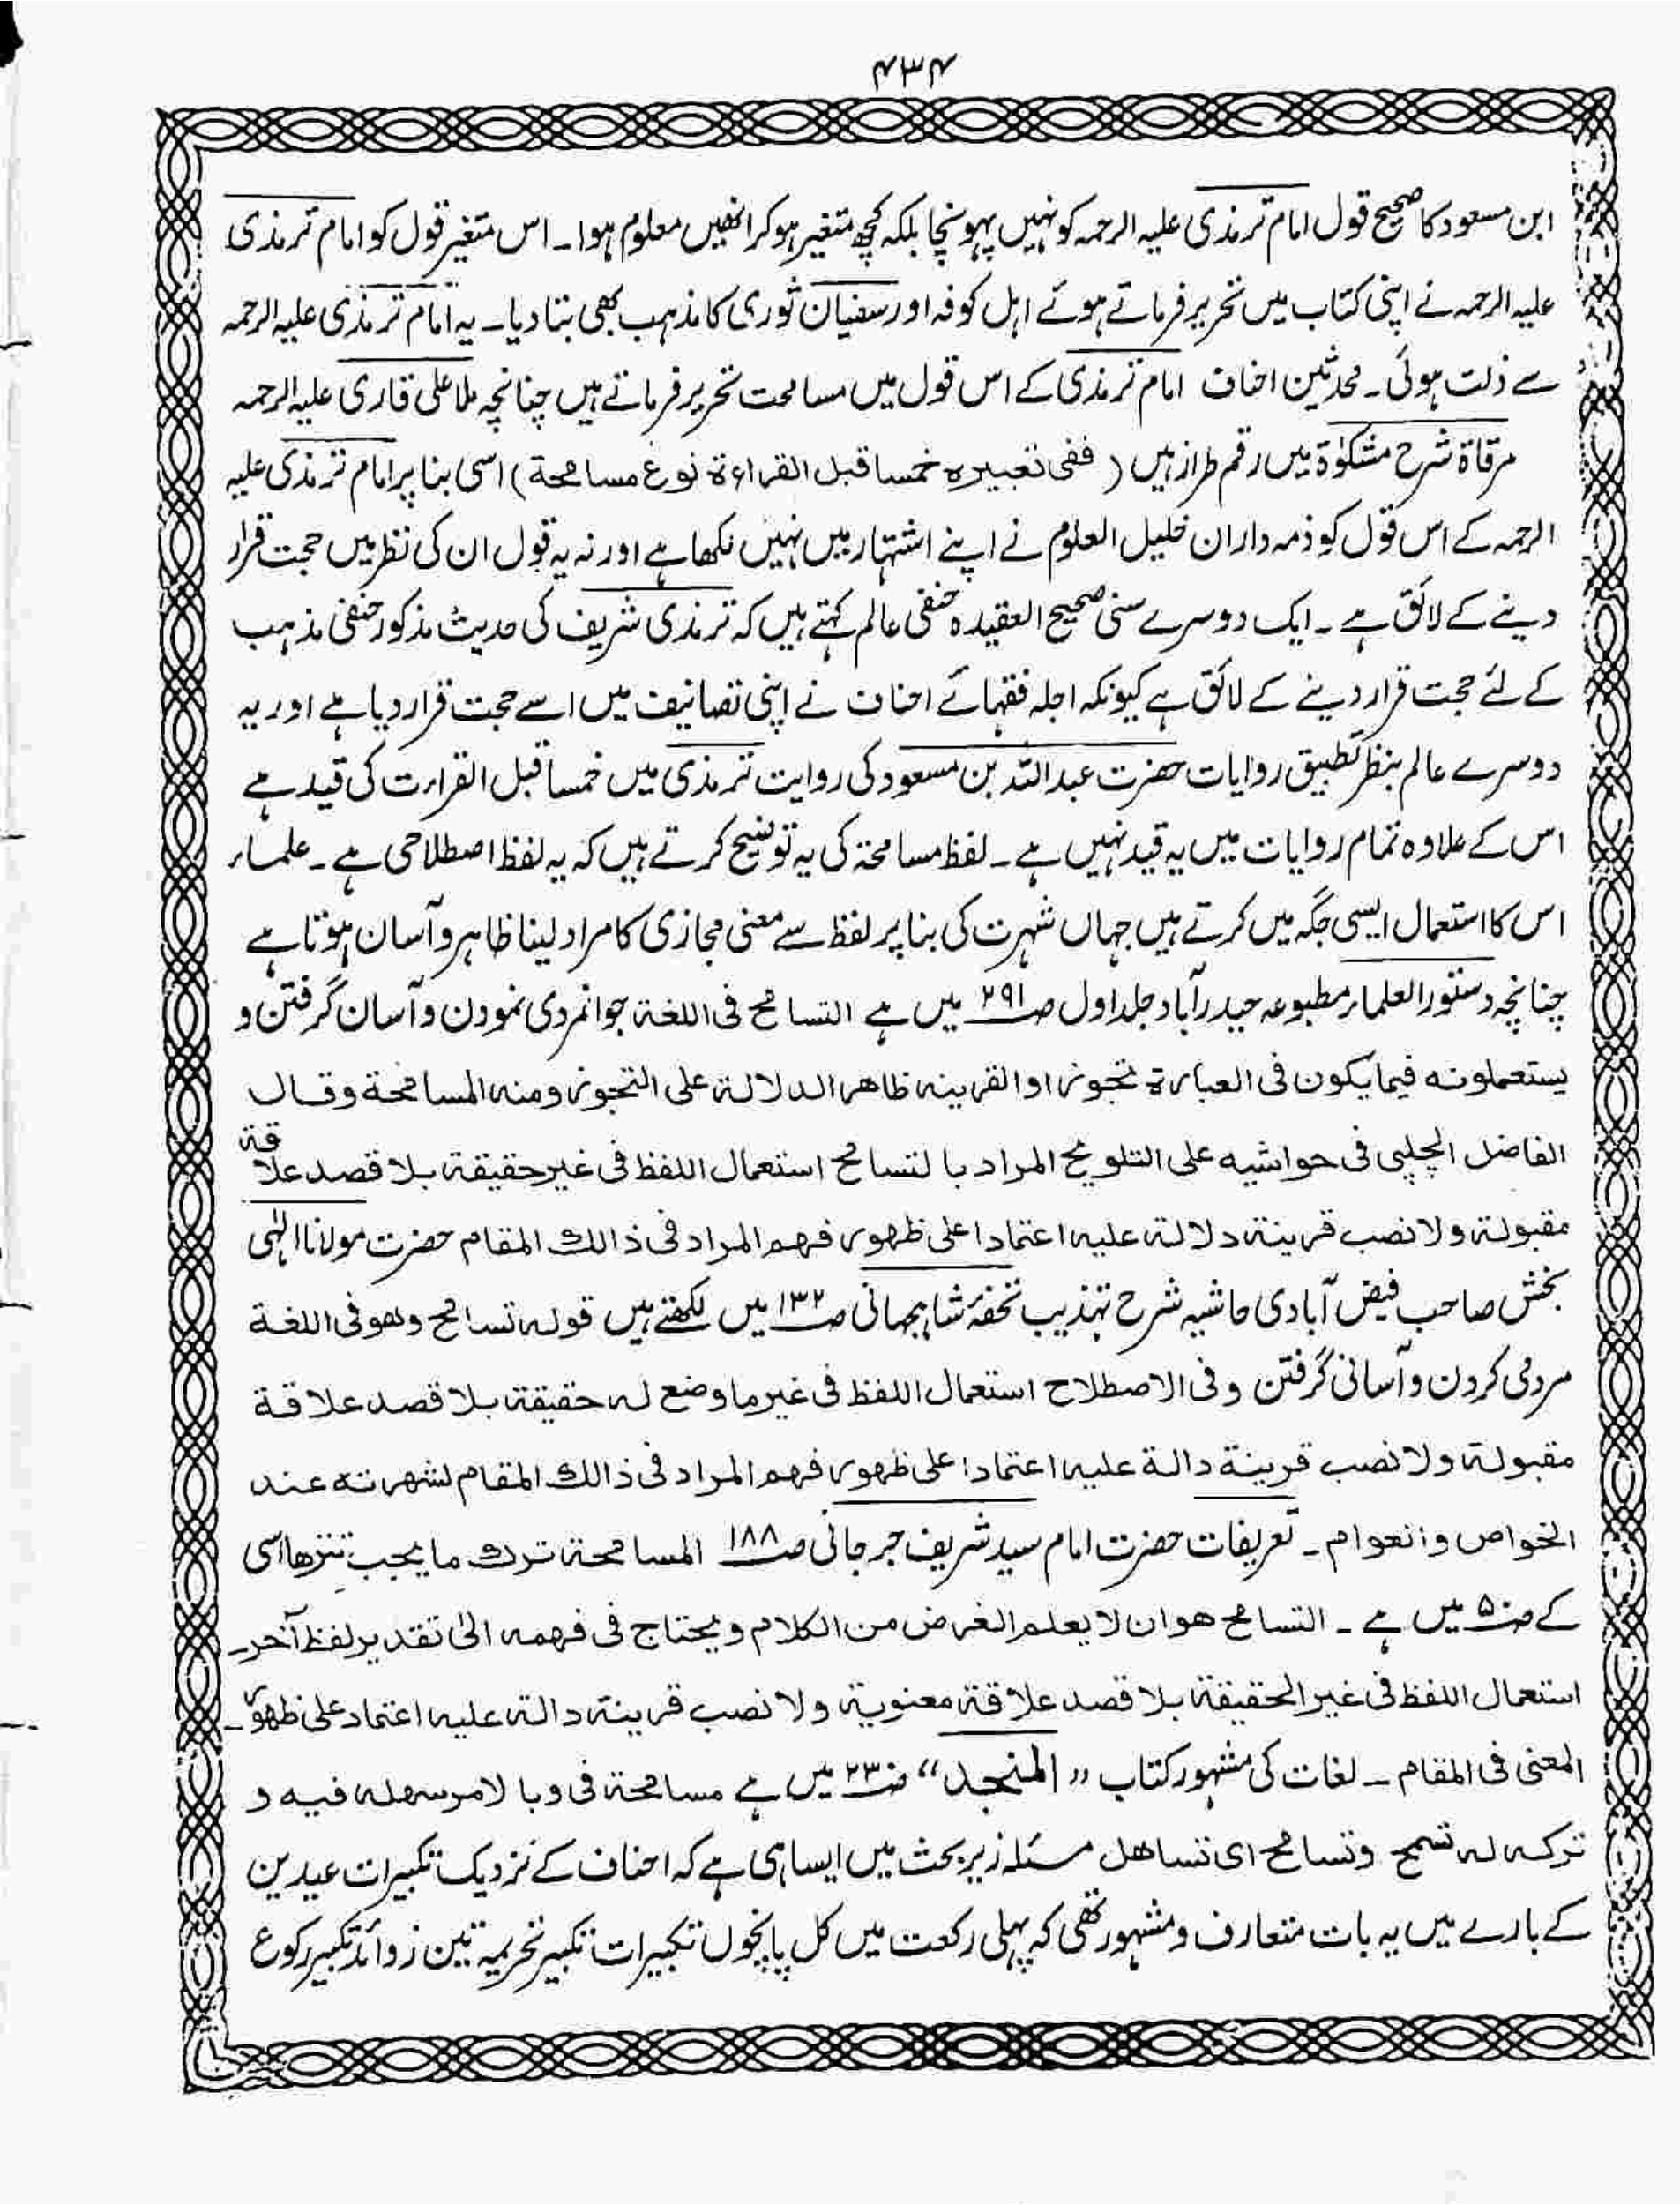 ۴۳۴
ابن مسعود کا صحیح قول امام ترمذی علیہ الرحمہ کو نہیں پہونچا بلکہ کچھ متغیر ہو کر انھیں معلوم ہوا۔ اس متغیر قول کو امام ترمذی
علیہ الرحمہ نے اپنی کتاب میں تحریر فرماتے ہوئے اہل کوفہ اور سفیان ثوری کا مذہب بھی بتا دیا۔ یہ امام ترمذی علیہ الرحمہ
سے ذلت ہوئی۔ محدثین احناف امام ترمذی کے اس قول میں مسامحت تحریر فرماتے ہیں چنانچہ ملا علی قاری علیہ الرحمہ
مرقاۃ شرح مشکوٰۃ میں رقم طراز ہیں (ففی تعبیرہ خمسا قبل القراءة نوع مسامحة) اسی بنا پر امام ترمذی علیہ
الرحمہ کے اس قول کو ذمہ داران خلیل العلوم نے اپنے اشتہار میں نہیں لکھا ہے اور نہ یہ قول ان کی نظر میں حجت قرار
دینے کے لائق ہے۔ ایک دوسرے سنی صحیح العقیدہ حنفی عالم کہتے ہیں کہ ترمذی شریف کی حدیث مذکور حنفی مذہب
کے لئے حجت قرار دینے کے لائق ہے کیونکہ اجلہ فقہائے احناف نے اپنی تصانیف میں اسے حجت قرار دیا ہے اور یہ
دوسرے عالم بنظر تطبیق روایات حضرت عبداللہ بن مسعود کی روایت ترمذی میں خمسا قبل القراءت کی قید ہے
اس کے علاوہ تمام روایات میں یہ قید نہیں ہے۔ لفظ مسامحۃ کی یہ توضیح کرتے ہیں کہ یہ لفظ اصطلاحی ہے۔ علماء
اس کا استعمال ایسی جگہ میں کرتے ہیں جہاں شہرت کی بنا پر لفظ سے معنی مجازی کا مراد لینا ظاہر و آسان ہوتا ہے
چنانچہ دستور العلماء مطبوعہ حیدرآباد جلد اول ص۲۹۱ میں ہے التسامح فی اللغة جوانمردی نمودن و آسان گرفتن و
یستعملونه فیما یکون فی العبارة تجوز او القرینه ظاهر الدلالة علی التجوز ومنه المسامحة وقال
الفاضل الچلپی فی حواشیه علی التلویح المراد بالتسامح استعمال اللفظ فی غیر حقیقة بلا قصد علاقة
مقبولة ولا نصب قرینة دلالة علیه اعتمادا علی ظهور فهم المراد فی ذالك المقام حضرت مولانا الٰہی
بخش صاحب فیض آبادی حاشیہ شرح تہذیب تحفۂ شاہجہانی ص۱۳۲ میں لکھتے ہیں قوله تسامح وهو فی اللغة
مردمی کردن و آسانی گرفتن وفی الاصطلاح استعمال اللفظ فی غیر ما وضع له حقیقة بلا قصد علاقة
مقبولة ولا نصب قرینة دالة علیه اعتمادا علی ظهور فهم المراد فی ذالك المقام لشهرته عند
الخواص والعوام۔ تعریفات حضرت امام سید شریف جرجانی ص۱۸۸ المسامحة ترك ما یجب تنزها اسی
کے ص۵۰ میں ہے۔ التسامح هو ان لا یعلم الغرض من الکلام ویحتاج فی فهمه الی تقدیر لفظ آخر۔
استعمال اللفظ فی غیر الحقیقة بلا قصد علاقة معنویة ولا نصب قرینة دالة علیه اعتماد علی ظهور۔
المعنی فی المقام۔ لغات کی مشہور کتاب "المنجد" ص۲۳ میں ہے مسامحة فی وبالامر سهله فیه و
ترکه له تسمح وتسامح ای تساهل مسئلہ زیر بحث میں ایسا ہی ہے کہ احناف کے نزدیک تکبیرات عیدین
کے بارے میں یہ بات متعارف و مشہور تھی کہ پہلی رکعت میں کل پانچوں تکبیرات تکبیر تحریمہ تین زوائد تکبیر رکوع